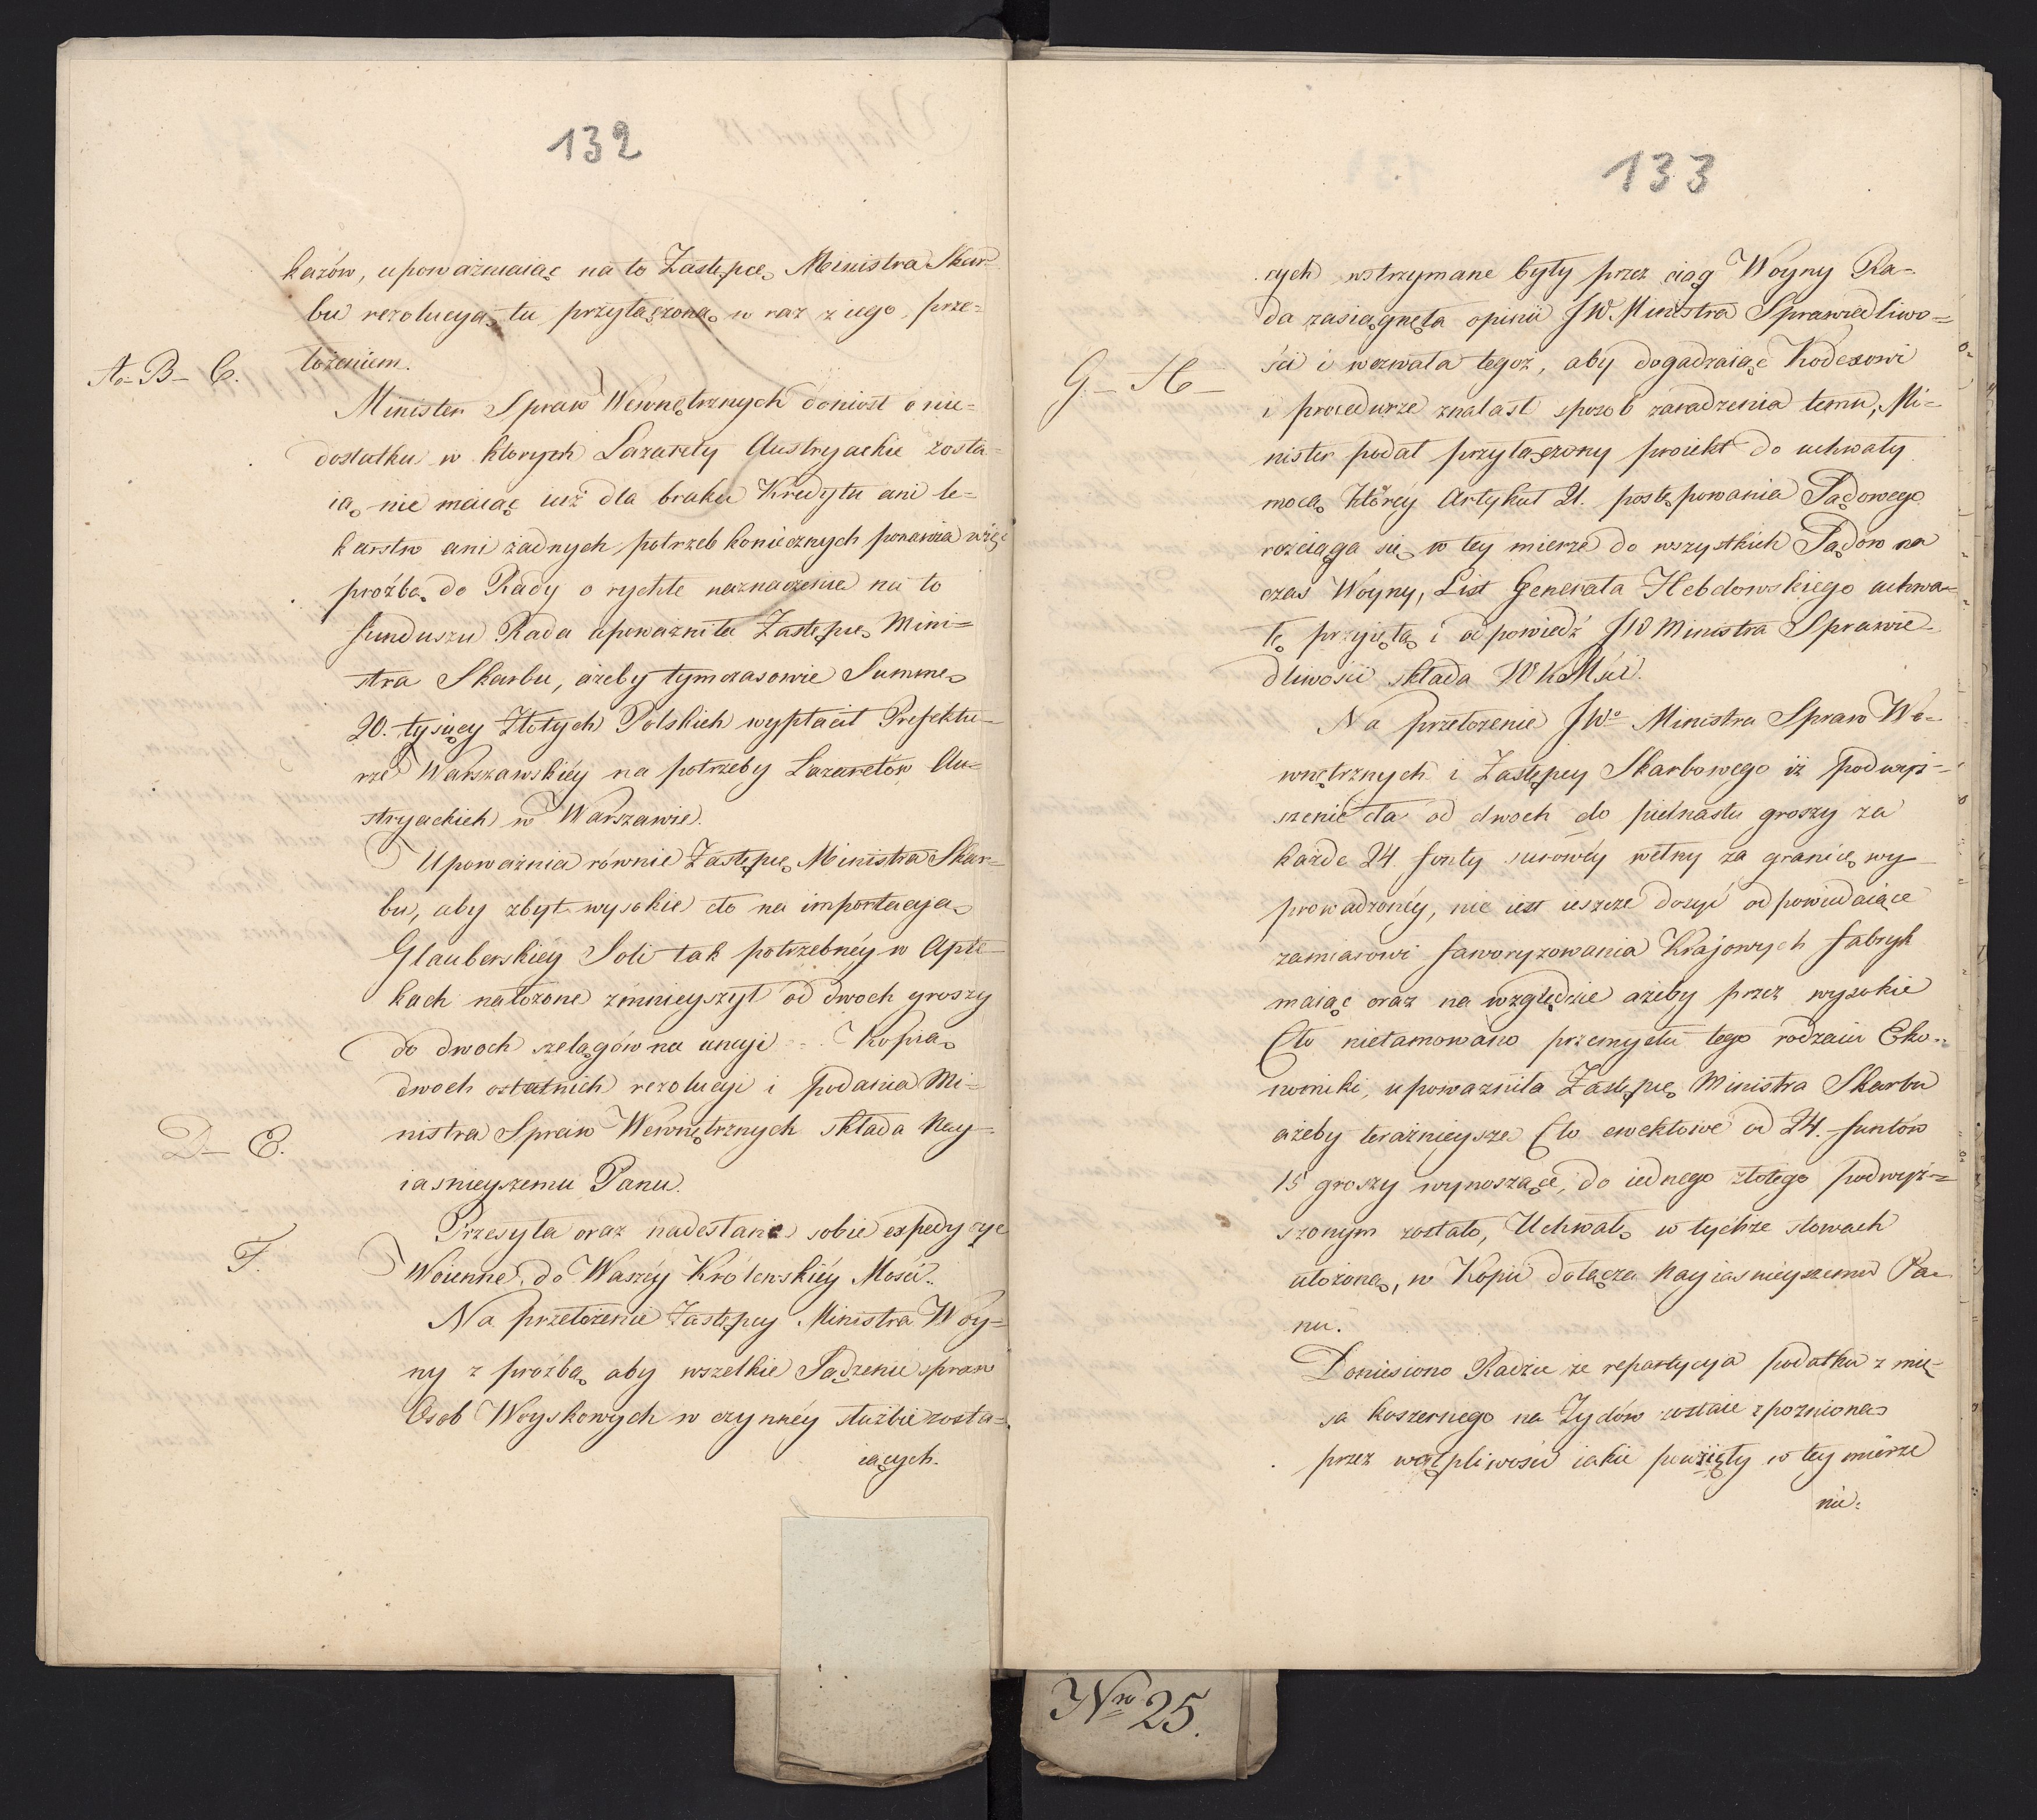 132
kazów, upoważniaiąc na to Zastępcę Ministra Skar-
bu rezolucyją tu przyłączoną w raz z iego prze-
A- B- C.
łożeniem.
Minister Spraw Wewnętrznych doniosł o nie-
dostatku w ktorych Lazarety Austryackie zosta-
ią, nie maiąc iuż dla braku Kredytu ani le-
karstw ani żadnych potrzeb koniecznych ponawia więc
proźbę do Rady o rychłe naznaczenie na to
funduszu Rada upoważniła Zastępcę Mini-
stra Skarbu, ażeby tymczasowie Summę
20. tysięcy Złotych Polskich wypłacił Prefektu-
rze Warszawskiéy na potrzeby Lazaretów Au-
stryackich w Warszawie.
Upoważnia równie Zastępcę Ministra Skar-
bu, aby zbyt wysokie cło na importacyją
Glauberskiéy Soli tak potrzebnéy w Apte-
kach nałożone zmnieyszył od dwoch groszy
do dwoch szelągów na uncyi - Kopią
dwoch ostatnich rezolucji i podania Mi-
D- E.
nistra Spraw Wewnętrznych składa Nay-
iasnieyszemu Panu.
Przesyła oraz nadesłane sobie expedycye
F.
Woienne, do Waszéy Królewskiéy Mości.
Na przełożenie Zastępcy Ministra Woy-
ny z proźbą aby wszelkie Sądzenie spraw
Osob Woyskowych w czynnéy służbie zosta-
iących.
133
cych wstrzymane były przez ciąg Woyny Ra-
da zasiągnęła opinii JW. Ministra Sprawiedliwo-
G- H-
ści i wezwała tegoż, aby dogadzaiąc Kodexowi
i procedurze znalasł sposob zaradzenia temu, Mi-
nister podał przyłączony proiekt do uchwały
mocą któréy Artykuł 21. postępowania Sądowego
rozciąga się w tey mierze do wszystkich Sądów na
czas Woyny, List Generała Hebdowskiego uchwa-
łę przyiętą i odpowiedź JW Ministra Sprawie-
dliwości składa WKMści.
Na przełożenie JWo Ministra Spraw We-
wnętrznych i Zastępcy Skarbowego iż podwyż-
szenie cła od dwoch do piętnastu groszy za
każde 24. funty surowéy wełny za granicę wy-
prowadzonéy, nie iest ieszcze dosyć odpowiedaiące
zamiarowi faworyzowania Krajowych fabryk
maiąc oraz na względzie ażeby przez wysokie
Cło nietamowano przemysłu tego rodzaiu Eko-
nomiki, upoważniła Zastępcę Ministra Skarbu
ażeby teraźnieysze Cło ewektowe od 24. funtów
15 groszy wynoszące, do iednego złotego podwyż-
szonym zostało, Uchwałę w tychże słowach
ułożoną, w Kopii dołącza Nayiasnieyszemu Pa-
nu.
Doniesiono Radzie że repartycyja podatku z mię-
sa koszernego na Zydów zostaie zpoznioną
przez wątpliwości iakie powzięły w tey mierze
nie-
Nro 25.